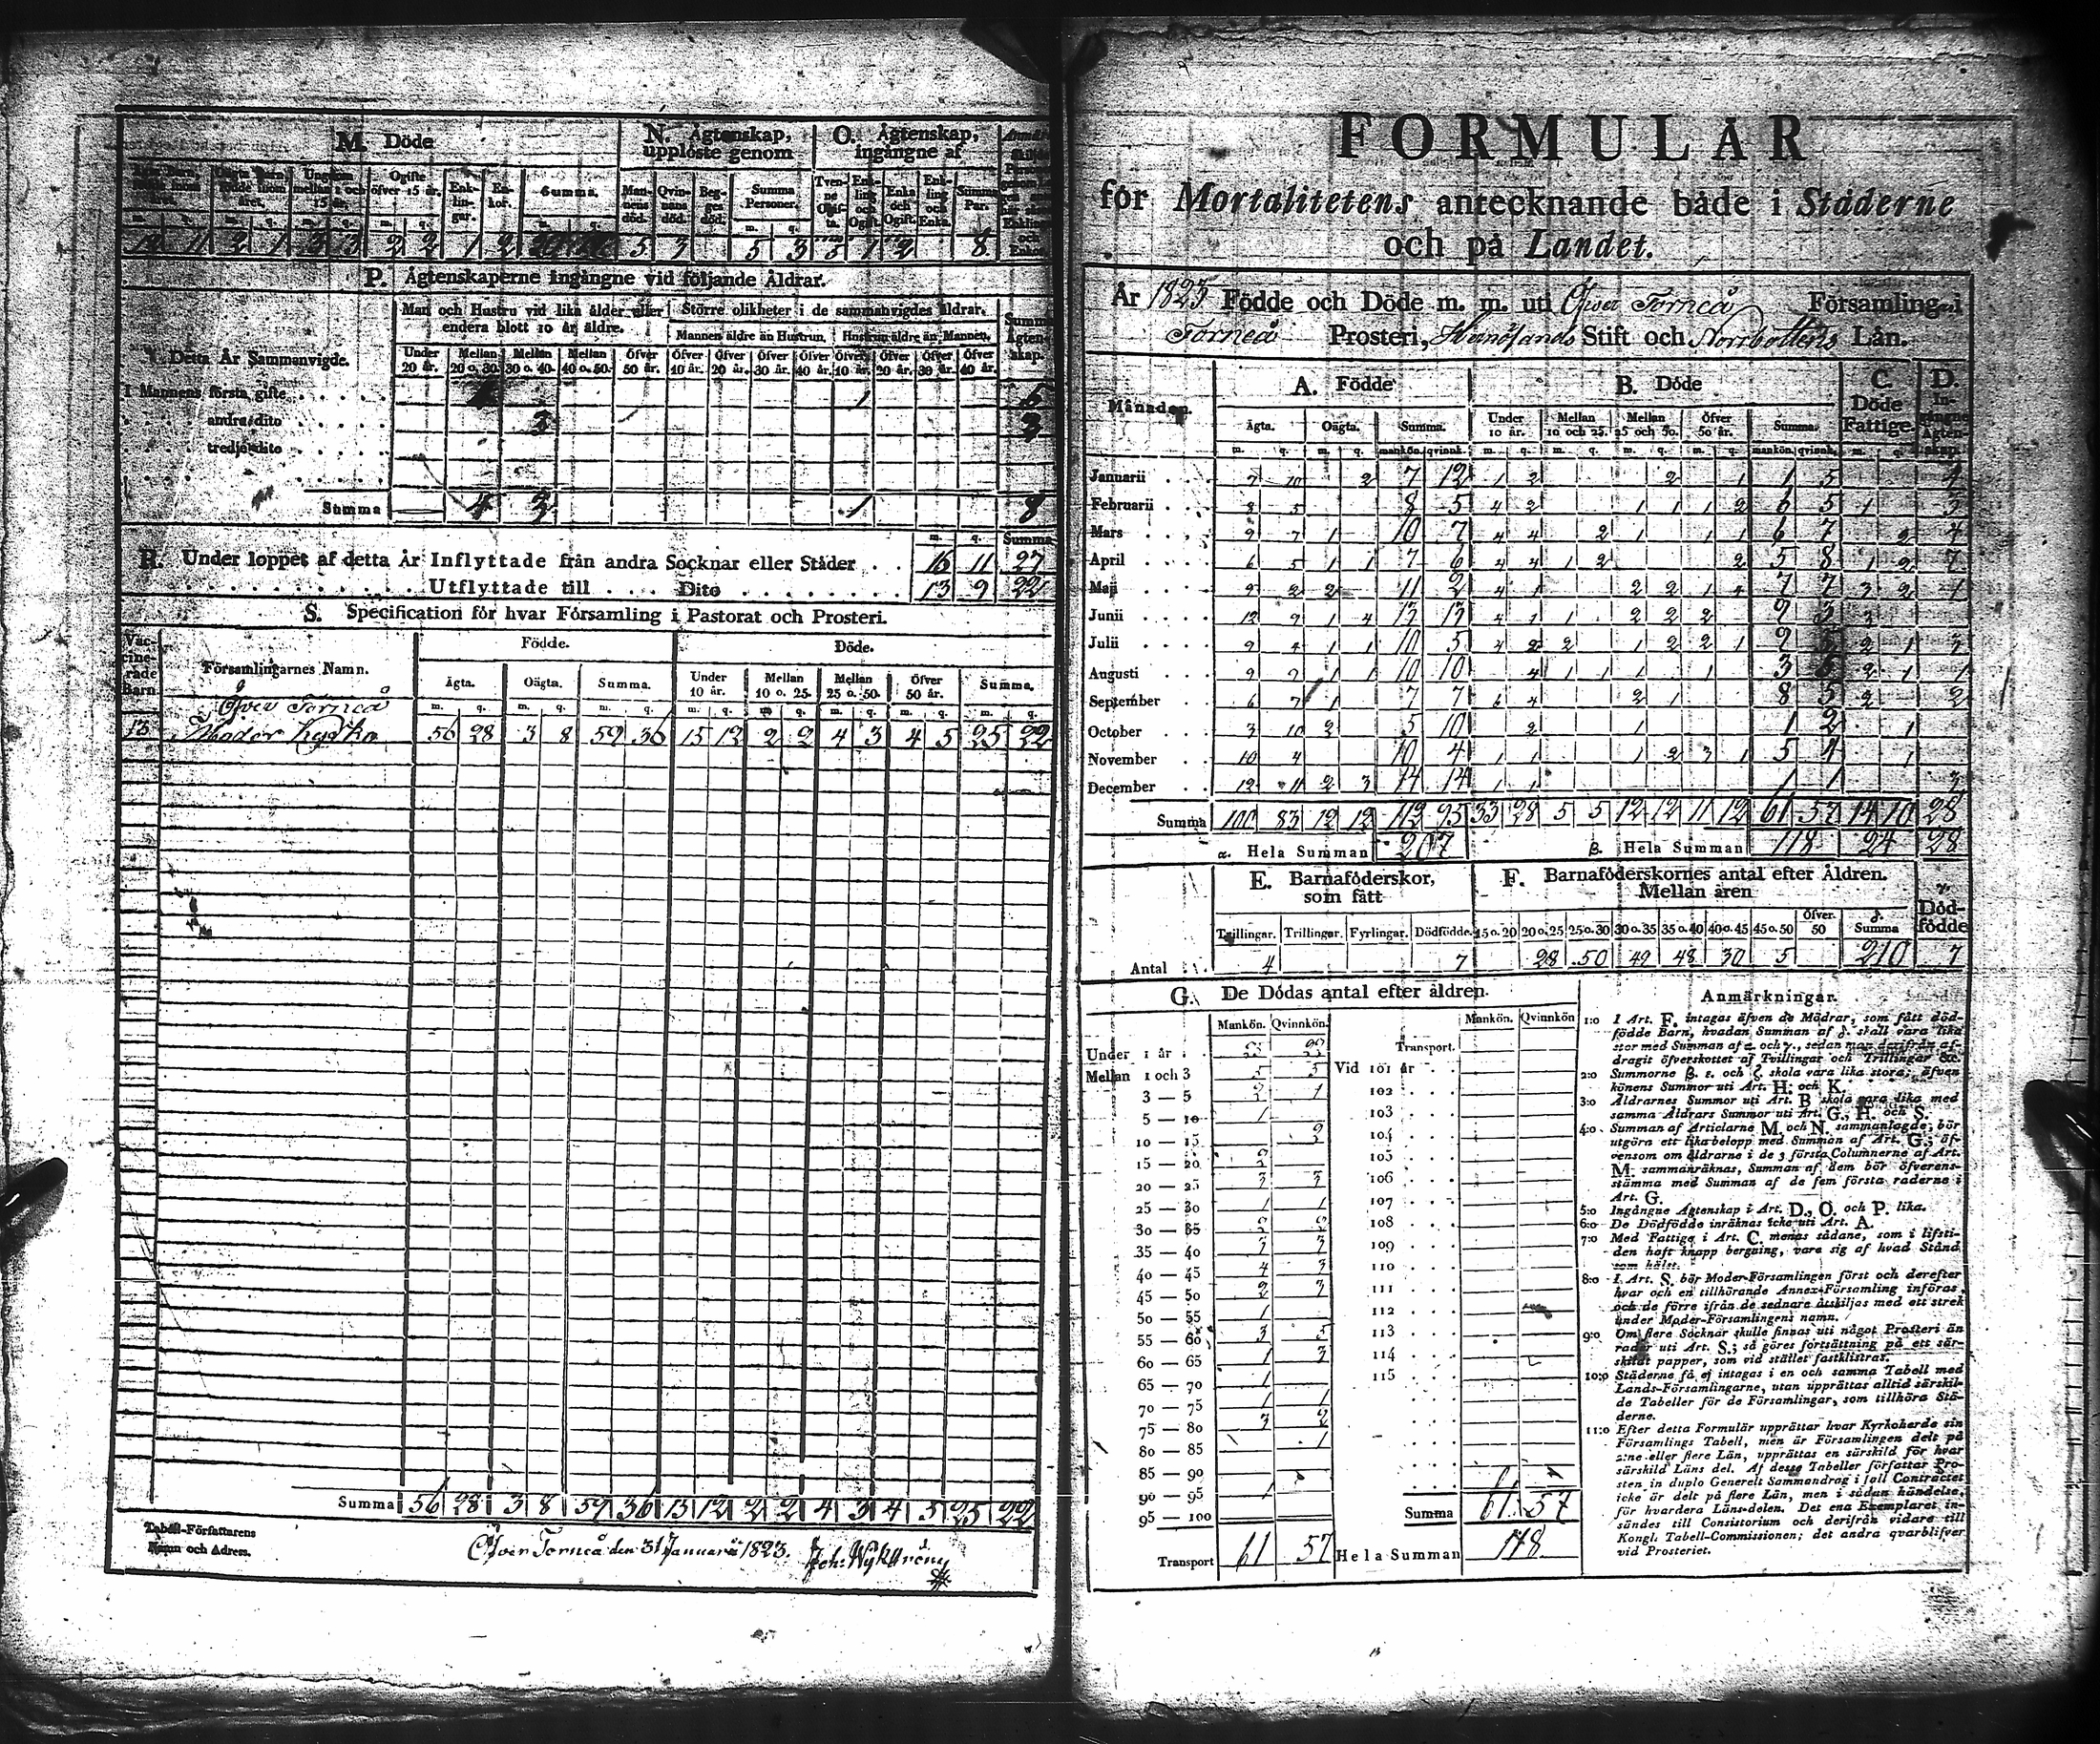 M. Döde
N. Ägtenskap, upplöste genom
O. Ägtenskap, ingångne af
Ungdom mellan 1 och 15 år.
Ogifte öfver 15 år.
Enk-lin-gar.
En-kor.
Summa.
Man-nens död.
Qvin-nans död.
Beg-ges död.
Summa Personer.
Tven-ne Ogif-ta.
Enk-ling och Ogift.
Enka och Ogift.
Enk-ling och Enka.
Summa Par.
5 3 5 3 5 1 2 8
P. Ägtenskaperne ingångne vid följande Åldrar.
Detta År Sammanvigde.
Man och Hustru vid lika ålder eller endera blott 10 år äldre.
Större olikheter i de sammanvigdes åldrar.
Mannen äldre än Hustrun. Hustrun äldre än Mannen.
Under 20 år. Mellan 20 o. 30. Mellan 30 o. 40. Mellan 40 o. 50. Öfver 50 år. Öfver 10 år. Öfver 20 år. Öfver 30 år. Öfver 40 år. Öfver 10 år. Öfver 20 år. Öfver 30 år. Öfver 40 år.
I Mannens första gifte 4 1 5
andra dito 3 3
tredje dito
Summa 4 3 1 8
m. q. Summa
R. Under loppet af detta År Inflyttade från andra Socknar eller Städer . . 16 11 27
Utflyttade till . . . . Dito . . . . 13 9 22
S. Specification för hvar Församling i Pastorat och Prosteri.
Vac-cine-rade Barn.
Församlingarnes Namn.
Födde. Döde.
Ägta. Oägta. Summa. Under 10 år. Mellan 10 o. 25. Mellan 25 o. 50. Öfver 50 år. Summa.
m. q. m. q. m. q. m. q. m. q. m. q. m. q. m. q.
Öfver Torneå
13 Moder Kyrka 56 28 3 8 59 36 15 12 2 2 4 3 4 5 25 22
Summa 56 28 3 8 59 36 15 12 2 2 4 3 4 5 25 22
Tabell-Författarens Namn och Adress.
Öfver Torneå den 31 Januarii 1823.
FORMULÄR
för Mortalitetens antecknande både i Städerne
och på Landet.
År 1823 Födde och Döde m. m. uti Öfver Torneå Församling i
Torneå Prosteri, Hernösands Stift och Norrbottens Län.
Månader.
A. Födde
B. Döde
C. Döde Fattige.
D. In-gångne Ägten-skap.
Ägta. Oägta. Summa. Under 10 år. Mellan 10 och 25. Mellan 25 och 50. Öfver 50 år. Summa.
m. q. m. q. mankön. qvinnk. m. q. m. q. m. q. m. q. mankön. qvinnk. m. q.
Januarii 7 10 2 7 12 1 2 2 1 1 5 4
Februarii 8 5 8 5 4 2 1 1 1 2 6 5 1 3
Mars 9 7 1 10 7 4 4 2 1 1 1 6 7 2 4
April 6 5 1 1 7 6 4 4 1 2 2 5 8 1 2 7
Maji 9 2 2 11 2 4 1 2 2 1 4 7 7 3 2 1
Junii 12 9 1 4 13 13 4 1 1 2 2 2 9 3 3
Julii 9 4 1 1 10 5 4 2 2 1 2 2 1 9 5 2 1 3
Augusti 9 9 1 1 10 10 4 1 1 1 1 3 2 1 1
September 6 7 1 7 7 6 4 2 1 8 5 2 2
October 3 10 2 5 10 2 1 1 2 1
November 10 4 10 4 1 1 1 2 3 1 5 4 1
December 12 11 2 3 14 14 1 1 1 1 3
Summa 100 83 12 12 112 95 33 28 5 5 12 12 11 12 61 57 14 10 28
α. Hela Summan 207
β. Hela Summan 118 24 28
E. Barnaföderskor, som fått
F. Barnaföderskornes antal efter Åldren. Mellan åren
γ. Död-födde
Tvillingar. Trillingar. Fyrlingar. Dödfödde. 15 o. 20 20 o. 25 25 o. 30 30 o. 35 35 o. 40 40 o. 45 45 o. 50 Öfver 50 Summa
Antal 4 7 28 50 49 48 30 5 210 7
G. De Dödas antal efter åldren.
Mankön. Qvinnkön. Mankön. Qvinnkön
Under 1 år
Mellan 1 och 3 5 5
3 — 5 2 1
5 — 10 1
10 — 15
15 — 20 2
20 — 25 3 3
25 — 30 1 1
30 — 35
35 — 40 3 3
40 — 45 4 3
45 — 50 2 3
50 — 55 1
55 — 60 3 5
60 — 65 1 3
65 — 70 1
70 — 75 1 1
75 — 80 3 2
80 — 85 1
85 — 90
90 — 95 1
95 — 100
Transport 61 57
Transport.
Vid 101 år
102
103
104
105
106
107
108
109
110
111
112
113
114
115
Summa 61 57
Hela Summan 118
Anmärkningar.
1:o I Art. F. intagas äfven de Mödrar, som fått död-
födde Barn, hvadan Summan af δ. skall vara lika
stor med Summan af α. och γ., sedan man derifrån af-
dragit öfverskottet af Tvillingar och Trillingar &c.
2:o Summorne β. ε. och ζ. skola vara lika stora; äfven
könens Summor uti Art. H. och K.
3:o Åldrarnes Summor uti Art. B skola vara lika med
samma Åldrars Summor uti Art. G., H. och S.
4:o Summan af Articlarne M. och N. sammanlagde; bör
utgöra ett lika belopp med Summan af Art. G.; äf-
vensom om åldrarne i de 3 första Columnerne af Art.
M. sammanräknas, Summan af dem bör öfverens-
stämma med Summan af de fem första raderne i
Art. G.
5:o Ingångne Ägtenskap i Art. D., O. och P. lika.
6:o De Dödfödde inräknas icke uti Art. A.
7:o Med Fattige i Art. C. menas sådane, som i lifsti-
den haft knapp bergning, vare sig af hvad Stånd
som hälst.
8:o I Art. S. bör Moder-Församlingen först och derefter
hvar och en tillhörande Annex-Församling införas,
och de förre ifrån de sednare åtskiljas med ett strek
under Moder-Församlingens namn.
9:o Om flere Socknar skulle finnas uti något Prosteri än
rader uti Art. S.; så göres fortsättning på ett sär-
skildt papper, som vid stället fastklistrar.
10:o Städerne få ej intagas i en och samma Tabell med
Lands-Församlingarne, utan upprättas alltid särskil-
de Tabeller för de Församlingar, som tillhöra Stä-
derne.
11:o Efter detta Formulär upprättar hvar Kyrkoherde sin
Församlings Tabell, men är Församlingen delt på
2:ne eller flere Län, upprättas en särskild för hvar
särskild Läns del. Af desse Tabeller författar Pro-
sten in duplo Generelt Sammandrag i fall Contractet
icke är delt på flere Län, men i sådan händelse,
för hvardera Läns-delen. Det ena Exemplaret in-
sändes till Consistorium och derifrån vidare till
Kongl. Tabell-Commissionen; det andra qvarblifver
vid Prosteriet.